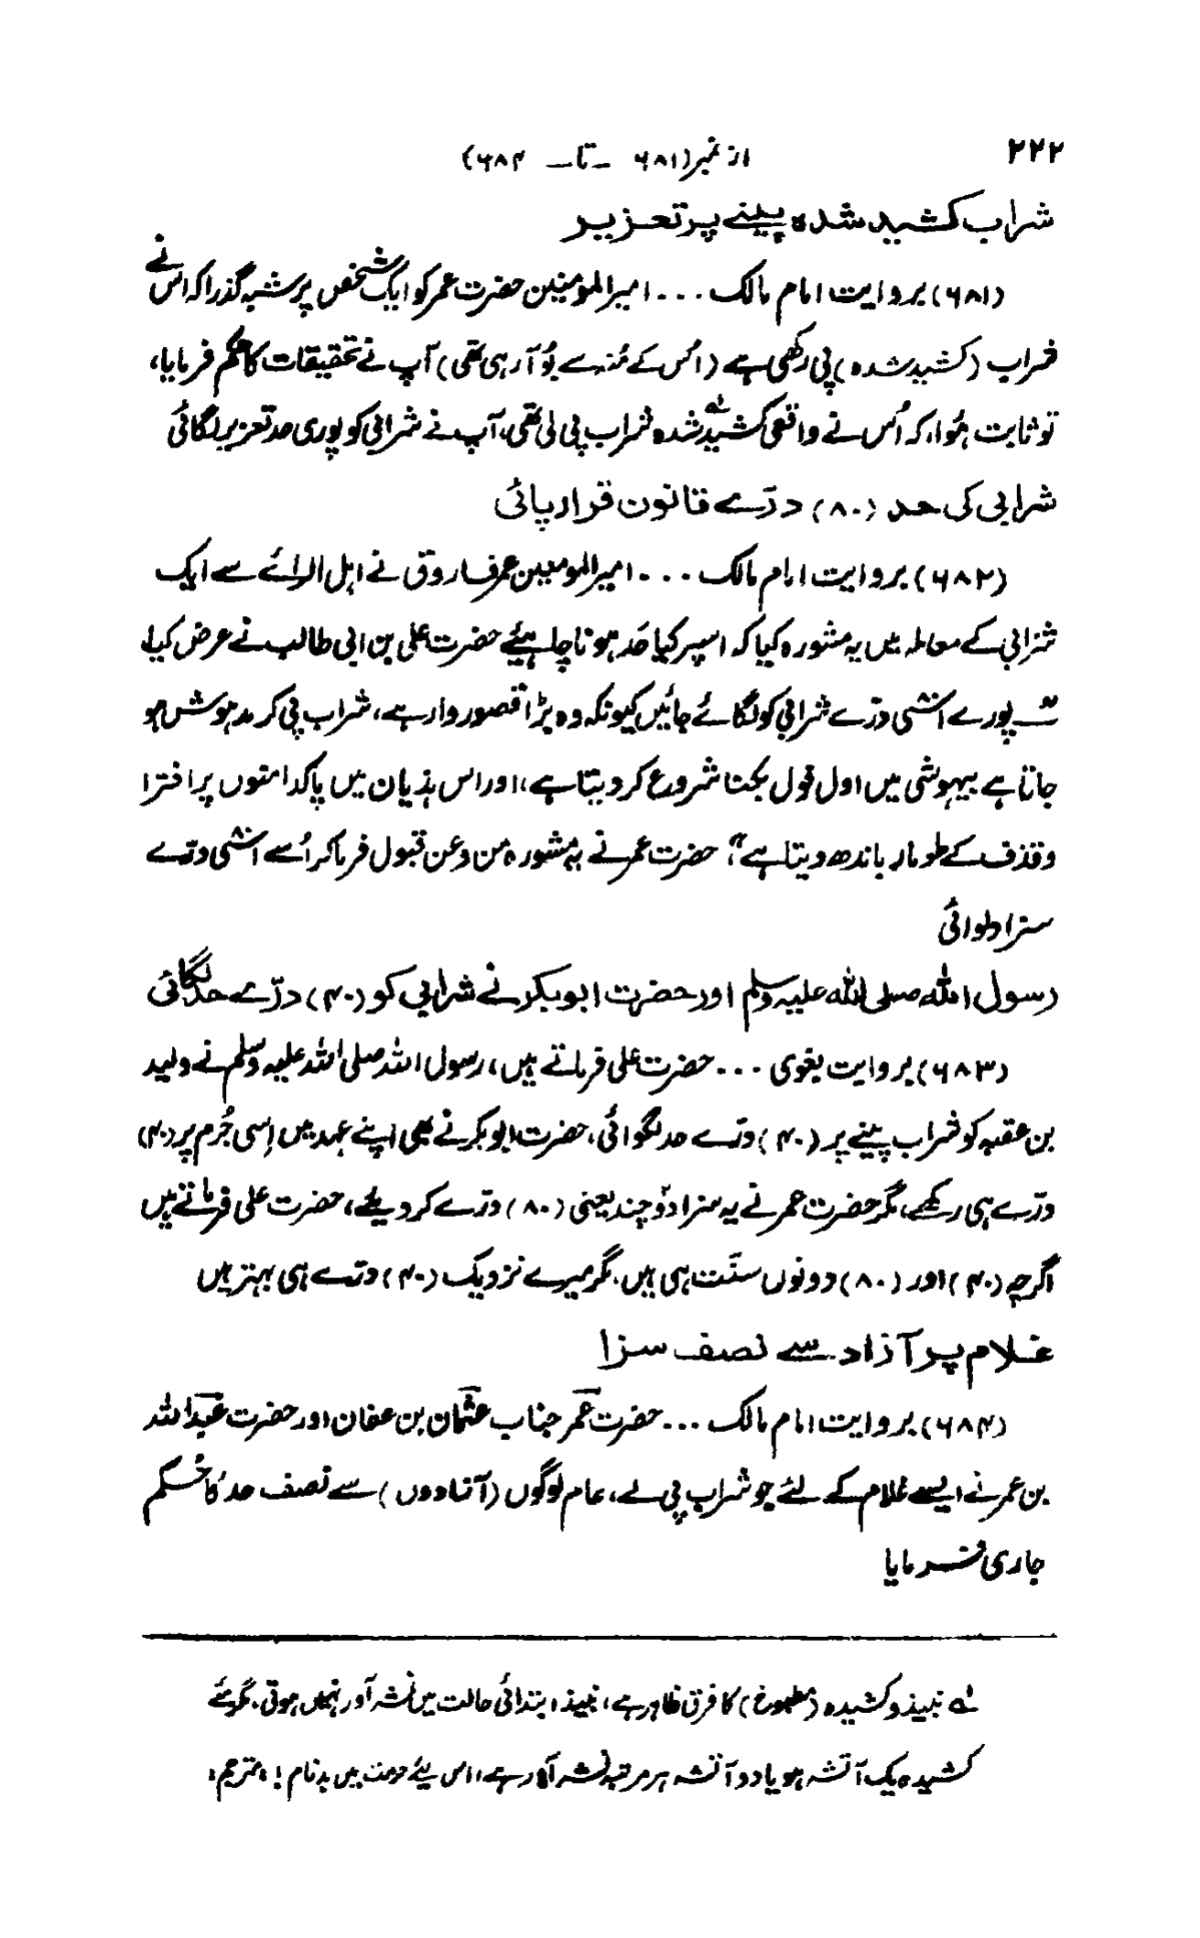 ۲۲۲
از نمبر (۶۸۱ ـ تا ـ ۶۸۴)
شراب کشید شدہ پینے پر تعزیر
(۶۸۱) بروایت امام مالک ... امیر المومنین حضرت عمر کو ایک شخص پر شبہ گذرا کہ اس نے
شراب (کشید شدہ) پی رکھی ہے (اُس کے مُنہ سے بُو آ رہی تھی) آپ نے تحقیقات کا حکم فرمایا،
تو ثابت ہُوا، کہ اُس نے واقعی کشید لہ شدہ شراب پی لی تھی، آپ نے شرابی کو پوری حد تعزیر لگائی
شرابی کی حد (۸۰) درّے قانون قرار پائی
(۶۸۲) بروایت امام مالک ... امیر المومنین عمر فاروق نے اہل الرائے سے ایک
شرابی کے معاملہ میں یہ مشورہ کیا کہ اسپر کیا حَد ہونا چاہیئے حضرت علی بن ابی طالب نے عرض کیا،
"پورے اسّی درّے شرابی کو لگائے جائیں کیونکہ وہ بڑا قصور وار ہے، شراب پی کر مدہوش ہو
جاتا ہے بیہوشی میں اول فول بکنا شروع کر دیتا ہے، اور اس ہذیان میں پاکدامنوں پر افترا
و قذف کے طومار باندھ دیتا ہے"؛ حضرت عمر نے یہ مشورہ من و عن قبول فرما کر اُسے اسّی درّے
سزا دلوائی
رسول اللہ صلی اللہ علیہ وسلم اور حضرت ابو بکر نے شرابی کو (۴۰) درّے حد لگائی
(۶۸۳) بروایت بغوی ... حضرت علی فرماتے ہیں، رسول اللہ صلی اللہ علیہ وسلم نے ولید
بن عقبہ کو شراب پینے پر (۴۰) درّے حد لگوائی، حضرت ابو بکر نے بھی اپنے عہد میں اِسی جُرم پر (۴۰)
درّے ہی رکھے، مگر حضرت عمر نے یہ سزا دوچند یعنی (۸۰) درّے کر دیئے، حضرت علی فرماتے ہیں
اگرچہ (۴۰) اور (۸۰) دونوں سنّت ہی ہیں، مگر میرے نزدیک (۴۰) درّے ہی بہتر ہیں
غلام پر آزاد سے نصف سزا
(۶۸۴) بروایت امام مالک ... حضرت عمر جناب عثمان بن عفان اور حضرت عبداللہ
بن عمر نے ایسے غلام کے لئے جو شراب پی لے، عام لوگوں (آزادوں) سے نصف حد کا حکم
جاری فرمایا
لہ نبیذ و کشیدہ (مطبوخ) کا فرق ظاہر ہے، نبیذ ابتدائی حالت میں نشہ آور نہیں ہوتی، مگر مئے
کشیدہ یک آتشہ ہو یا دو آتشہ ہر مرتبہ نشہ آور ہے، اس لیئے حرمت میں بدنام! ؛مترجم؛